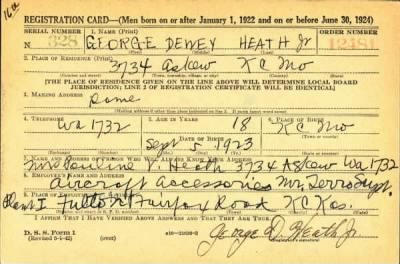 16a
REGISTRATION CARD—(Men born on or after January 1, 1922 and on or before June 30, 1924)
SERIAL NUMBER 1. NAME (Print) ORDER NUMBER
N 328 GEORGE DEWEY HEATH Jr 12481
2. PLACE OF RESIDENCE (Print)
3734 Askew K C Mo
[THE PLACE OF RESIDENCE GIVEN ON THE LINE ABOVE WILL DETERMINE LOCAL BOARD
JURISDICTION; LINE 2 OF REGISTRATION CERTIFICATE WILL BE IDENTICAL]
3. MAILING ADDRESS
Same
[Mailing address if other than place indicated on line 2. If same insert word same]
4. TELEPHONE 5. AGE IN YEARS 6. PLACE OF BIRTH
Wa 1732 18 K C Mo
DATE OF BIRTH
Sept 5 1923
7. NAME AND ADDRESS OF PERSON WHO WILL ALWAYS KNOW YOUR ADDRESS
Mrs Pauline V. Heath 3734 Askew Wa 1732
8. EMPLOYER'S NAME AND ADDRESS
Aircraft Accessories Mr. Terro Supt.
Plant I Fulton Fairfax Road KC Kas.
I AFFIRM THAT I HAVE VERIFIED ABOVE ANSWERS AND THAT THEY ARE TRUE.
D. S. S. Form 1
(Revised 6-1-42)
George D. Heath Jr